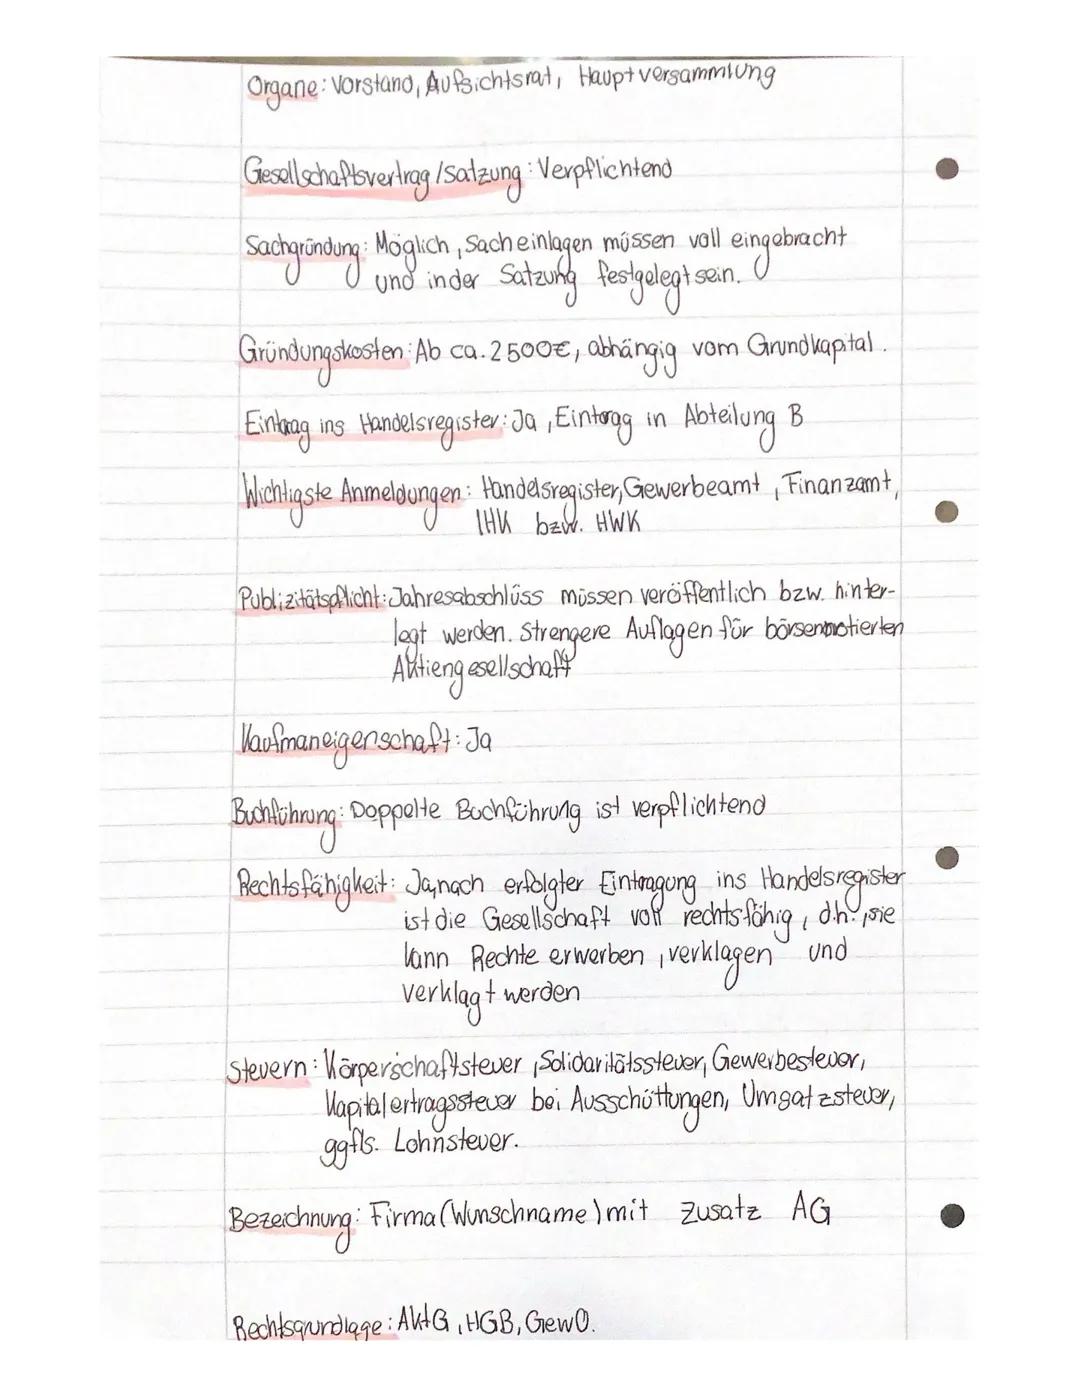 Organe: Vorstand, Aufsichtsrat, Hauptversammlung
Gesellschaftsvertrag/Satzung: Verpflichtend
Sachgründung: Möglich, Sacheinlagen müssen voll eingebracht
und in der Satzung festgelegt sein.
Gründungskosten: Ab ca. 2500€, abhängig vom Grundkapital.
Eintrag ins Handelsregister: Ja, Eintrag in Abteilung B
Wichtigste Anmeldungen: Handelsregister, Gewerbeamt, Finanzamt,
IHK bzw. HWK
Publizitätspflicht: Jahresabschlüss müssen veröffentlich bzw. hinter-
legt werden. Strengere Auflagen für börsennotierten
Aktiengesellschaft
Kaufmaneigenschaft: Ja
Buchführung: Doppelte Buchführung ist verpflichtend
Rechtsfähigkeit: Ja, nach erfolgter Eintragung ins Handelsregister
ist die Gesellschaft voll rechtsfähig, d.h., sie
kann Rechte erwerben, verklagen und
verklagt werden
Steuern: Körperschaftsteuer, Solidaritätssteuer, Gewerbesteuer,
Kapitalertragssteuer bei Ausschüttungen, Umsatzsteuer,
ggfls. Lohnsteuer.
Bezeichnung: Firma (Wunschname) mit Zusatz AG
Rechtsgrundlage: AktG, HGB, GewO.